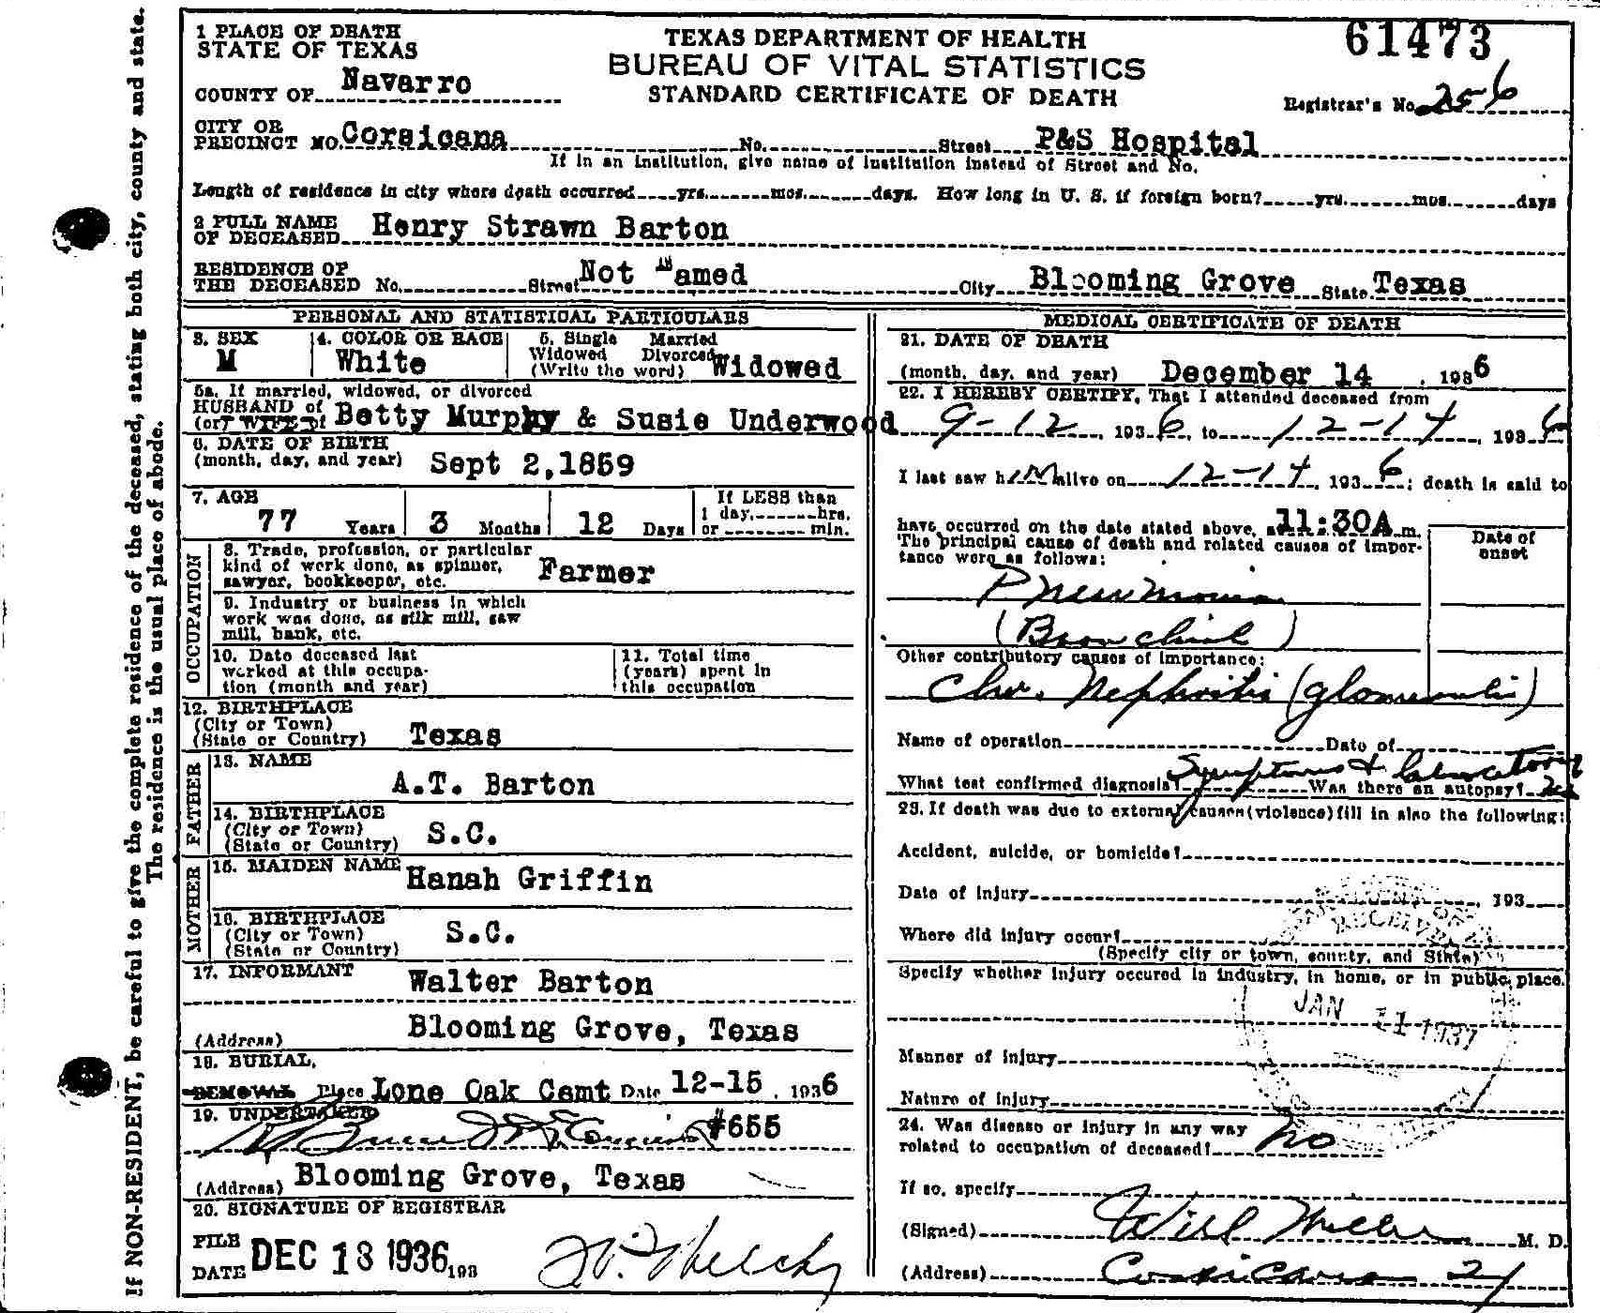 61473
1 PLACE OF DEATH
STATE OF TEXAS
COUNTY OF Navarro
TEXAS DEPARTMENT OF HEALTH
BUREAU OF VITAL STATISTICS
STANDARD CERTIFICATE OF DEATH
Registrar's No. 256
CITY OR
PRECINCT NO. Corsicana No. Street P&S Hospital
If in an institution, give name of institution instead of Street and No.
Length of residence in city where death occurred yrs. mos. days. How long in U. S. if foreign born? yrs. mos. days
2 FULL NAME
OF DECEASED Henry Strawn Barton
RESIDENCE OF
THE DECEASED No. Street Not Named City Blooming Grove State Texas
PERSONAL AND STATISTICAL PARTICULARS
3. SEX
M
4. COLOR OR RACE
White
5. Single Married
Widowed Divorced
(Write the word) Widowed
5a. If married, widowed, or divorced
HUSBAND of
(or) WIFE of Betty Murphy & Susie Underwood
6. DATE OF BIRTH
(month, day, and year) Sept 2,1859
7. AGE
77 Years 3 Months 12 Days
If LESS than
1 day, hrs.
or min.
OCCUPATION
8. Trade, profession, or particular
kind of work done, as spinner,
sawyer, bookkeeper, etc. Farmer
9. Industry or business in which
work was done, as silk mill, saw
mill, bank, etc.
10. Date deceased last
worked at this occupa-
tion (month and year)
11. Total time
(years) spent in
this occupation
12. BIRTHPLACE
(City or Town)
(State or Country) Texas
FATHER
13. NAME
A.T. Barton
14. BIRTHPLACE
(City or Town)
(State or Country) S.C.
MOTHER
15. MAIDEN NAME Hanah Griffin
16. BIRTHPLACE
(City or Town)
(State or Country) S.C.
17. INFORMANT Walter Barton
(Address) Blooming Grove, Texas
18. BURIAL,
REMOVAL Place Lone Oak Cemt Date 12-15, 1936
19. UNDERTAKER
#655
(Address) Blooming Grove, Texas
20. SIGNATURE OF REGISTRAR
FILE
DATE DEC 18 1936 193
Welch
MEDICAL CERTIFICATE OF DEATH
21. DATE OF DEATH
(month, day, and year) December 14, 1936
22. I HEREBY CERTIFY, That I attended deceased from
9-12, 1936, to 12-14, 1936
I last saw him alive on 12-14, 1936; death is said to
have occurred on the date stated above, at 11:30A m.
The principal cause of death and related causes of impor-
tance were as follows:
Date of
onset
Pneumonia
(Bronchial)
Other contributory causes of importance:
Chr. Nephritis
Name of operation Date of
What test confirmed diagnosis? Symptoms & laboratory Was there an autopsy? no
23. If death was due to external causes (violence) fill in also the following:
Accident, suicide, or homicide?
Date of injury , 193
Where did injury occur?
(Specify city or town, county, and State)
Specify whether injury occured in industry, in home, or in public place.
RECEIVED
JAN 11 1937
Manner of injury
Nature of injury
24. Was disease or injury in any way
related to occupation of deceased? no
If so, specify
(Signed) Will Miller M. D.
(Address) Corsicana
If NON-RESIDENT, be careful to give the complete residence of the deceased, stating both city, county and state.
The residence is the usual place of abode.